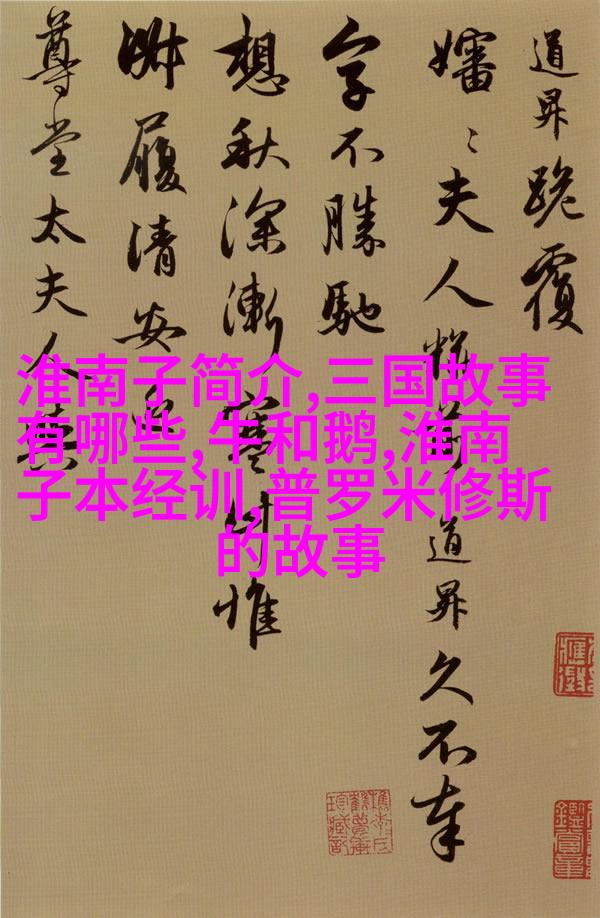 道昇跪覆
嬸〻夫人粧前道昇久不奉
字不勝馳
想秋深漸寒計惟
淑履清安
尊堂太夫人與
淮南子简介,三国故事
有哪些,牛和鹅,淮南
子本经训,普罗米修斯
的故事